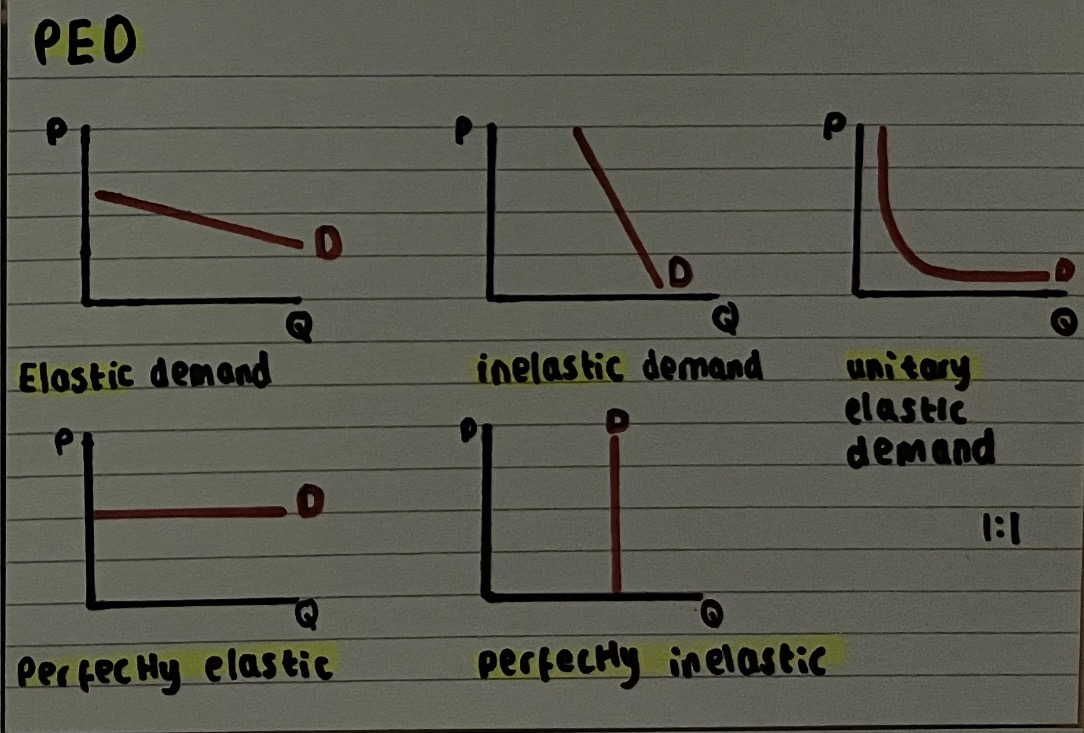 PED
P
D
Q
Elastic demand
P
D
Q
inelastic demand
P
D
Q
unitary
elastic
demand
1:1
P
D
Q
Perfectly elastic
P
D
Q
perfectly inelastic